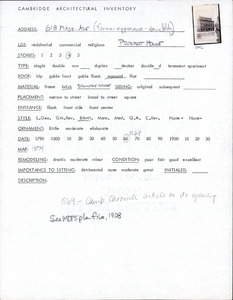 CAMBRIDGE ARCHITECTURAL INVENTORY
ADDRESS: 618 Mass. Ave
USE: residential commercial religious Prospect House
STORIES: 1 2 3 4 5
TYPE: single double row duplex decker double d tenement apartment
ROOF: hip gable front gable flank mansard flat
MATERIAL: frame brick SIDING: original subsequent
PLACEMENT: narrow to street broad to street square
ENTRANCE: flank front side front center
STYLE: L.Geo, Grk.Rev, Ital, Mans, Med, Q.A, C.Rev, None
ORNAMENT: little moderate elaborate
DATE: 1790 1800 10 20 30 40 50 60 70 80 90 1900 10 20 30
MAP: 1874
REMODELING: drastic moderate minor CONDITION: poor fair good excellent
IMPORTANCE TO SETTING: detrimental none moderate great INITIALED:
DESCRIPTION:
1869 - Camb. Chronicle article on its opening
See plan file, 1908